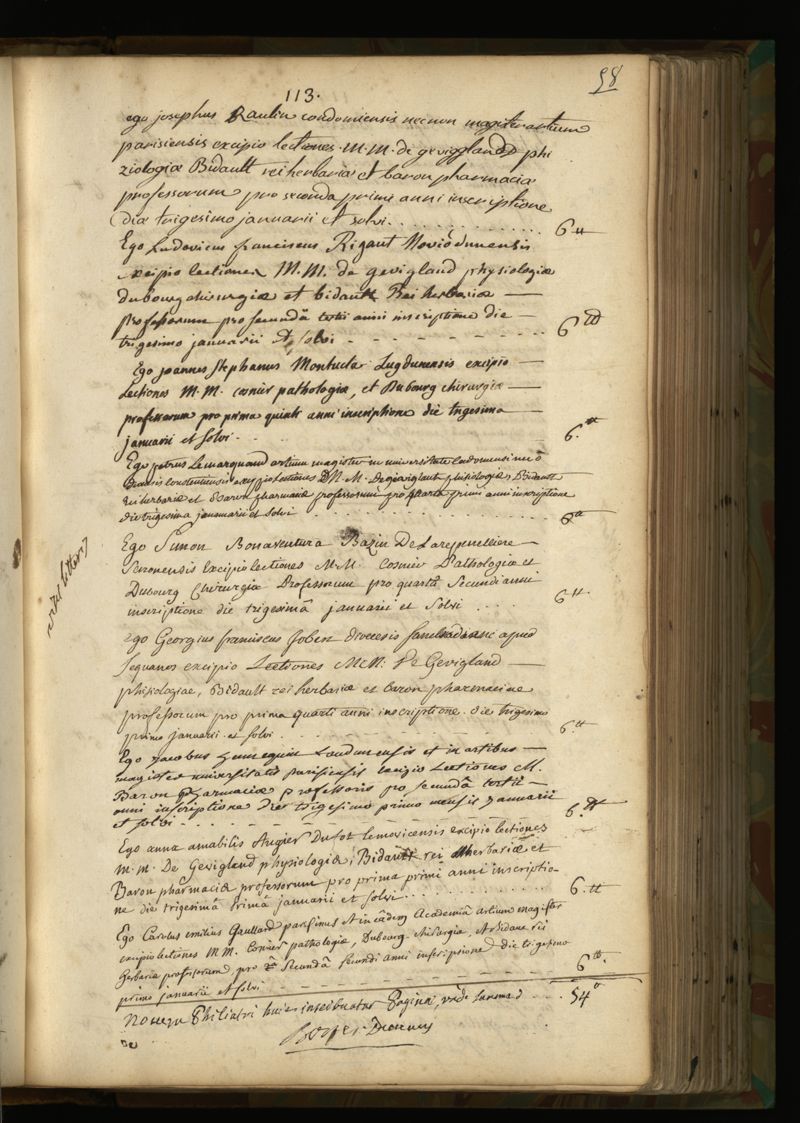 58
113.
ego josephus Raulin condomiensis necnon magister artium
parisiensis excipio lectiones M.M. de gevigland phi
ziologiæ Bidault rei herbariæ et baron pharmacia
professorum pro seconda primi anni inscriptione
die trigesimo januarii et solvi . . . . . . . . . . 6  tt
Ego Ludovicus franciscus Rigaut Noviodunensis
excipio lectiones M.M. de gevigland physiologiæ
dubourg chirurgiæ et bidault Rei herbariæ —
professorum pro secundâ tertii anni inscriptione die —
trigesimo januarii et solvi - - - - - - - - 6 tt
Ego joannes stephanus Montucla Lugdunensis excipio —
Lectiones M.M. cosnier pathologiæ, et Dubourg chirurgiæ —
professorum pro prima quinti anni inscriptione die trigesima —
januarii et solvi . . 6. tt
Ego petrus Lemarquand artium magister in universitate Cadomensi nec ô
excipio Lectiones D.M.M. De gevigland phisiologiæ, Bidault
rei herbariæ et Baron pharmaciæ professorum pro quarta primi anni inscriptione
die trigesima januarii et solvi . . . . . . . . . . 6 tt
Ego Simon Bonaventura Bazin De Larepenelliere —
excipio lectiones M.M. Cosnier Pathologiæ et
Dubourg Chirurgiæ Professorum pro quartâ Secundi anni
inscriptione die trigesimâ januarii et Solvi . . . . 6 tt
ego Georgius franciscus jobez diocesis apud
sequanos excipio Lectiones M.M. De Gevigland —
phisiologiae, Bidault rei herbariæ et baron pharmaciæ
professorum pro prima quarti anni inscriptione. die trigesimo
primo januarii et solvi . - - - - - - - - 6 tt
Ego jacobus hennequin Laudunensis et in artibus —
magister universitatis parisiensis excipio Lectiones M.
Baron Pharmaciæ professoris pro secundâ tertii —
anni inscriptione die trigesimo primo mensis januarii
et solvi - - - - - - - - - - 6. tt
Ego anna amabilis Augier Dufot lemovicensis excipio lectiones
m.m. De Gevigland physiologiæ, Bidault rei herbariæ et
Baron pharmaciæ professorum pro prima primi anni inscriptio-
ne die trigesimâ primâ januarii et solvi . . . . . . . . 6. tt
Ego Carolus emilius Gaullard parisinus et in eâdem Academiâ artium magister
excipio lectiones MM. Cosnier pathologiæ, Dubourg chirurgiæ, et Bidault rei
herbariæ professorum pro secundâ secundi anni inscriptione die trigesimo
primo januarii et solvi - - - - - - - - 6 tt.
Novem Philiatri huic inscribuntur Paginæ, unde summa . . . 54 tt
Boyer Decanus